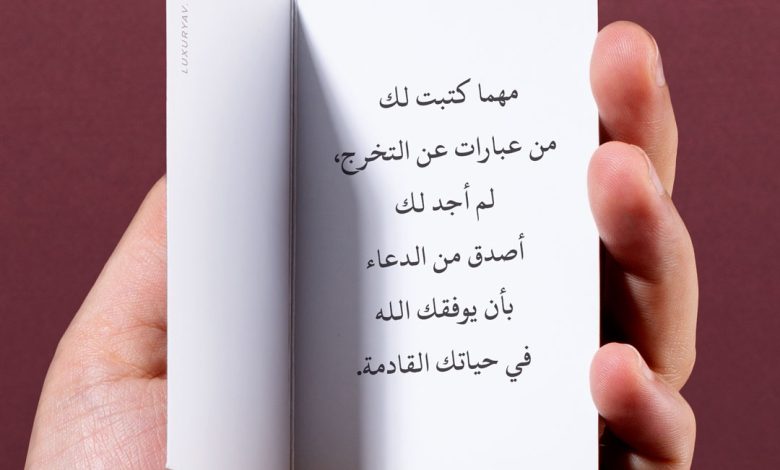 LUXURYAV.
مهما كتبت لك
من عبارات عن التخرج،
لم أجد لك
أصدق من الدعاء
بأن يوفقك الله
في حياتك القادمة.